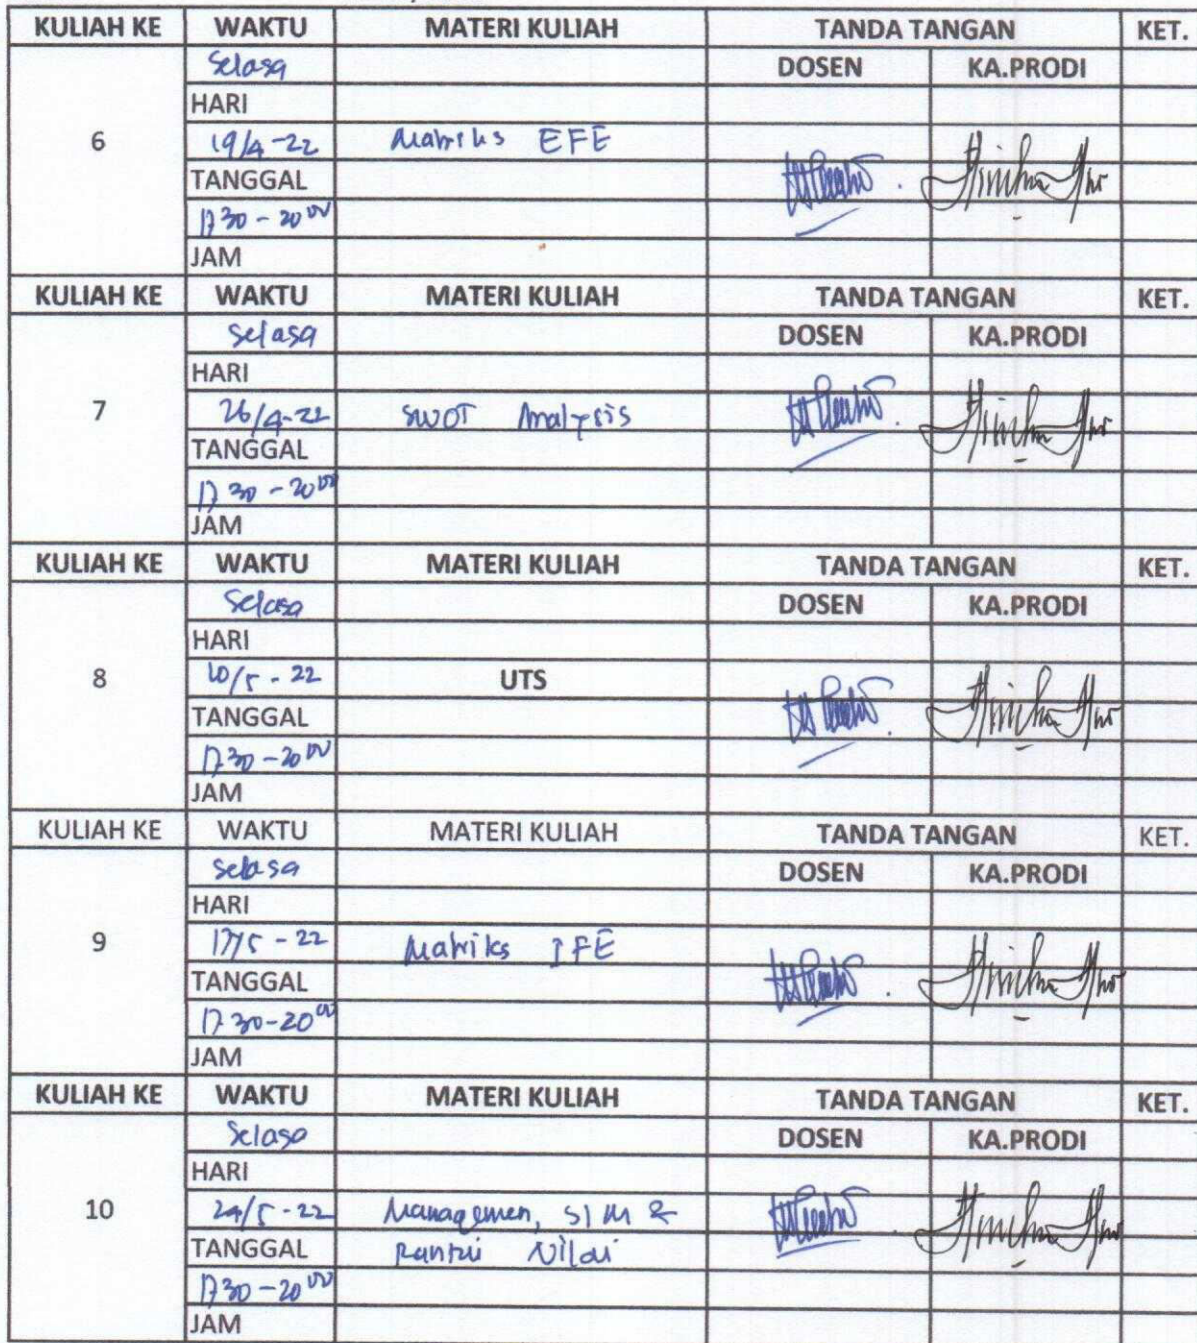 KULIAH KE WAKTU MATERI KULIAH TANDA TANGAN KET.
Selasa DOSEN KA.PRODI
HARI
6 19/4-22 Matriks EFE
TANGGAL
17 30 - 20 00
JAM
KULIAH KE WAKTU MATERI KULIAH TANDA TANGAN KET.
Selasa DOSEN KA.PRODI
HARI
7 26/4-22 SWOT Analysis
TANGGAL
17 30 - 20 00
JAM
KULIAH KE WAKTU MATERI KULIAH TANDA TANGAN KET.
Selasa DOSEN KA.PRODI
HARI
8 10/5 - 22 UTS
TANGGAL
17 30 - 20 00
JAM
KULIAH KE WAKTU MATERI KULIAH TANDA TANGAN KET.
Selasa DOSEN KA.PRODI
HARI
9 17/5 - 22 Matriks IFE
TANGGAL
17 30 - 20 00
JAM
KULIAH KE WAKTU MATERI KULIAH TANDA TANGAN KET.
Selasa DOSEN KA.PRODI
HARI
10 24/5 - 22 Managemen, SIM &
TANGGAL Rantai Nilai
17 30 - 20 00
JAM